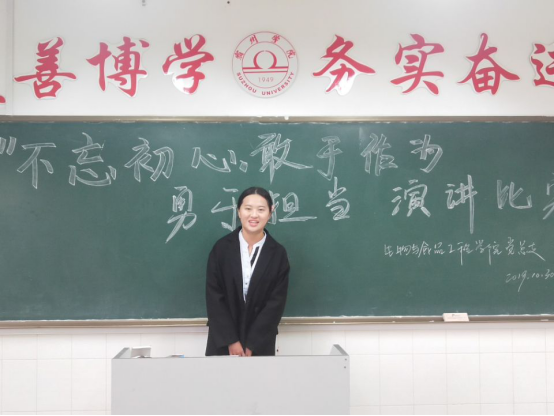 善博学
宿州学院
1949
SUZHOU UNIVERSITY
务实奋进
"不忘初心,敢于作为
勇于担当 演讲比赛
生物与食品工程学院党总支
2019.10.30